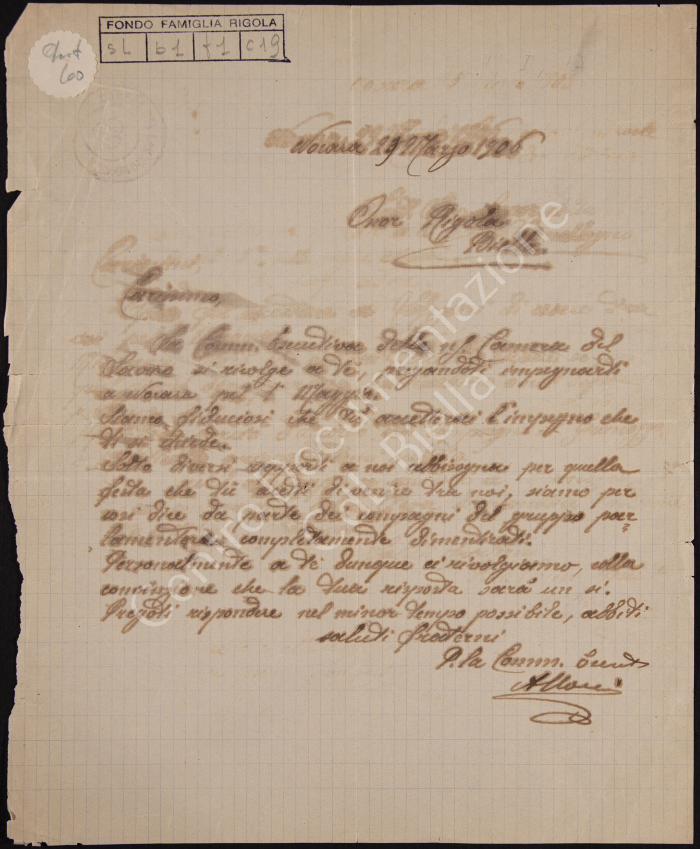 FONDO FAMIGLIA RIGOLA
SL b1 f1 c19
Novara 29 Marzo 1906
Onor Rigola
Biella
Carissimo,
La Comm. Esecutiva della ns/ Camera del
Lavoro si rivolge a té, pregandoti impegnarti
a Novara pel 1° Maggio.
Siamo fiduciosi che tù accetterai l'impegno che
ti si chiede.
Sotto diversi rapporti a noi abbisogna per quella
festa che tù accetti di venire trà noi, siamo per
così dire da parte dei compagni del gruppo par-
lamentare completamente dimenticati.
Personalmente a té dunque ci rivolgiamo, colla
convinzione che la tua risposta sarà un si.
Pregoti rispondere nel minor tempo possibile, abbiti
saluti fraterni
P. la Comm. Esecut
Centro Documentazione
CdL Biella